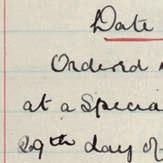 Date
Ordered
at a Specia
29th day of